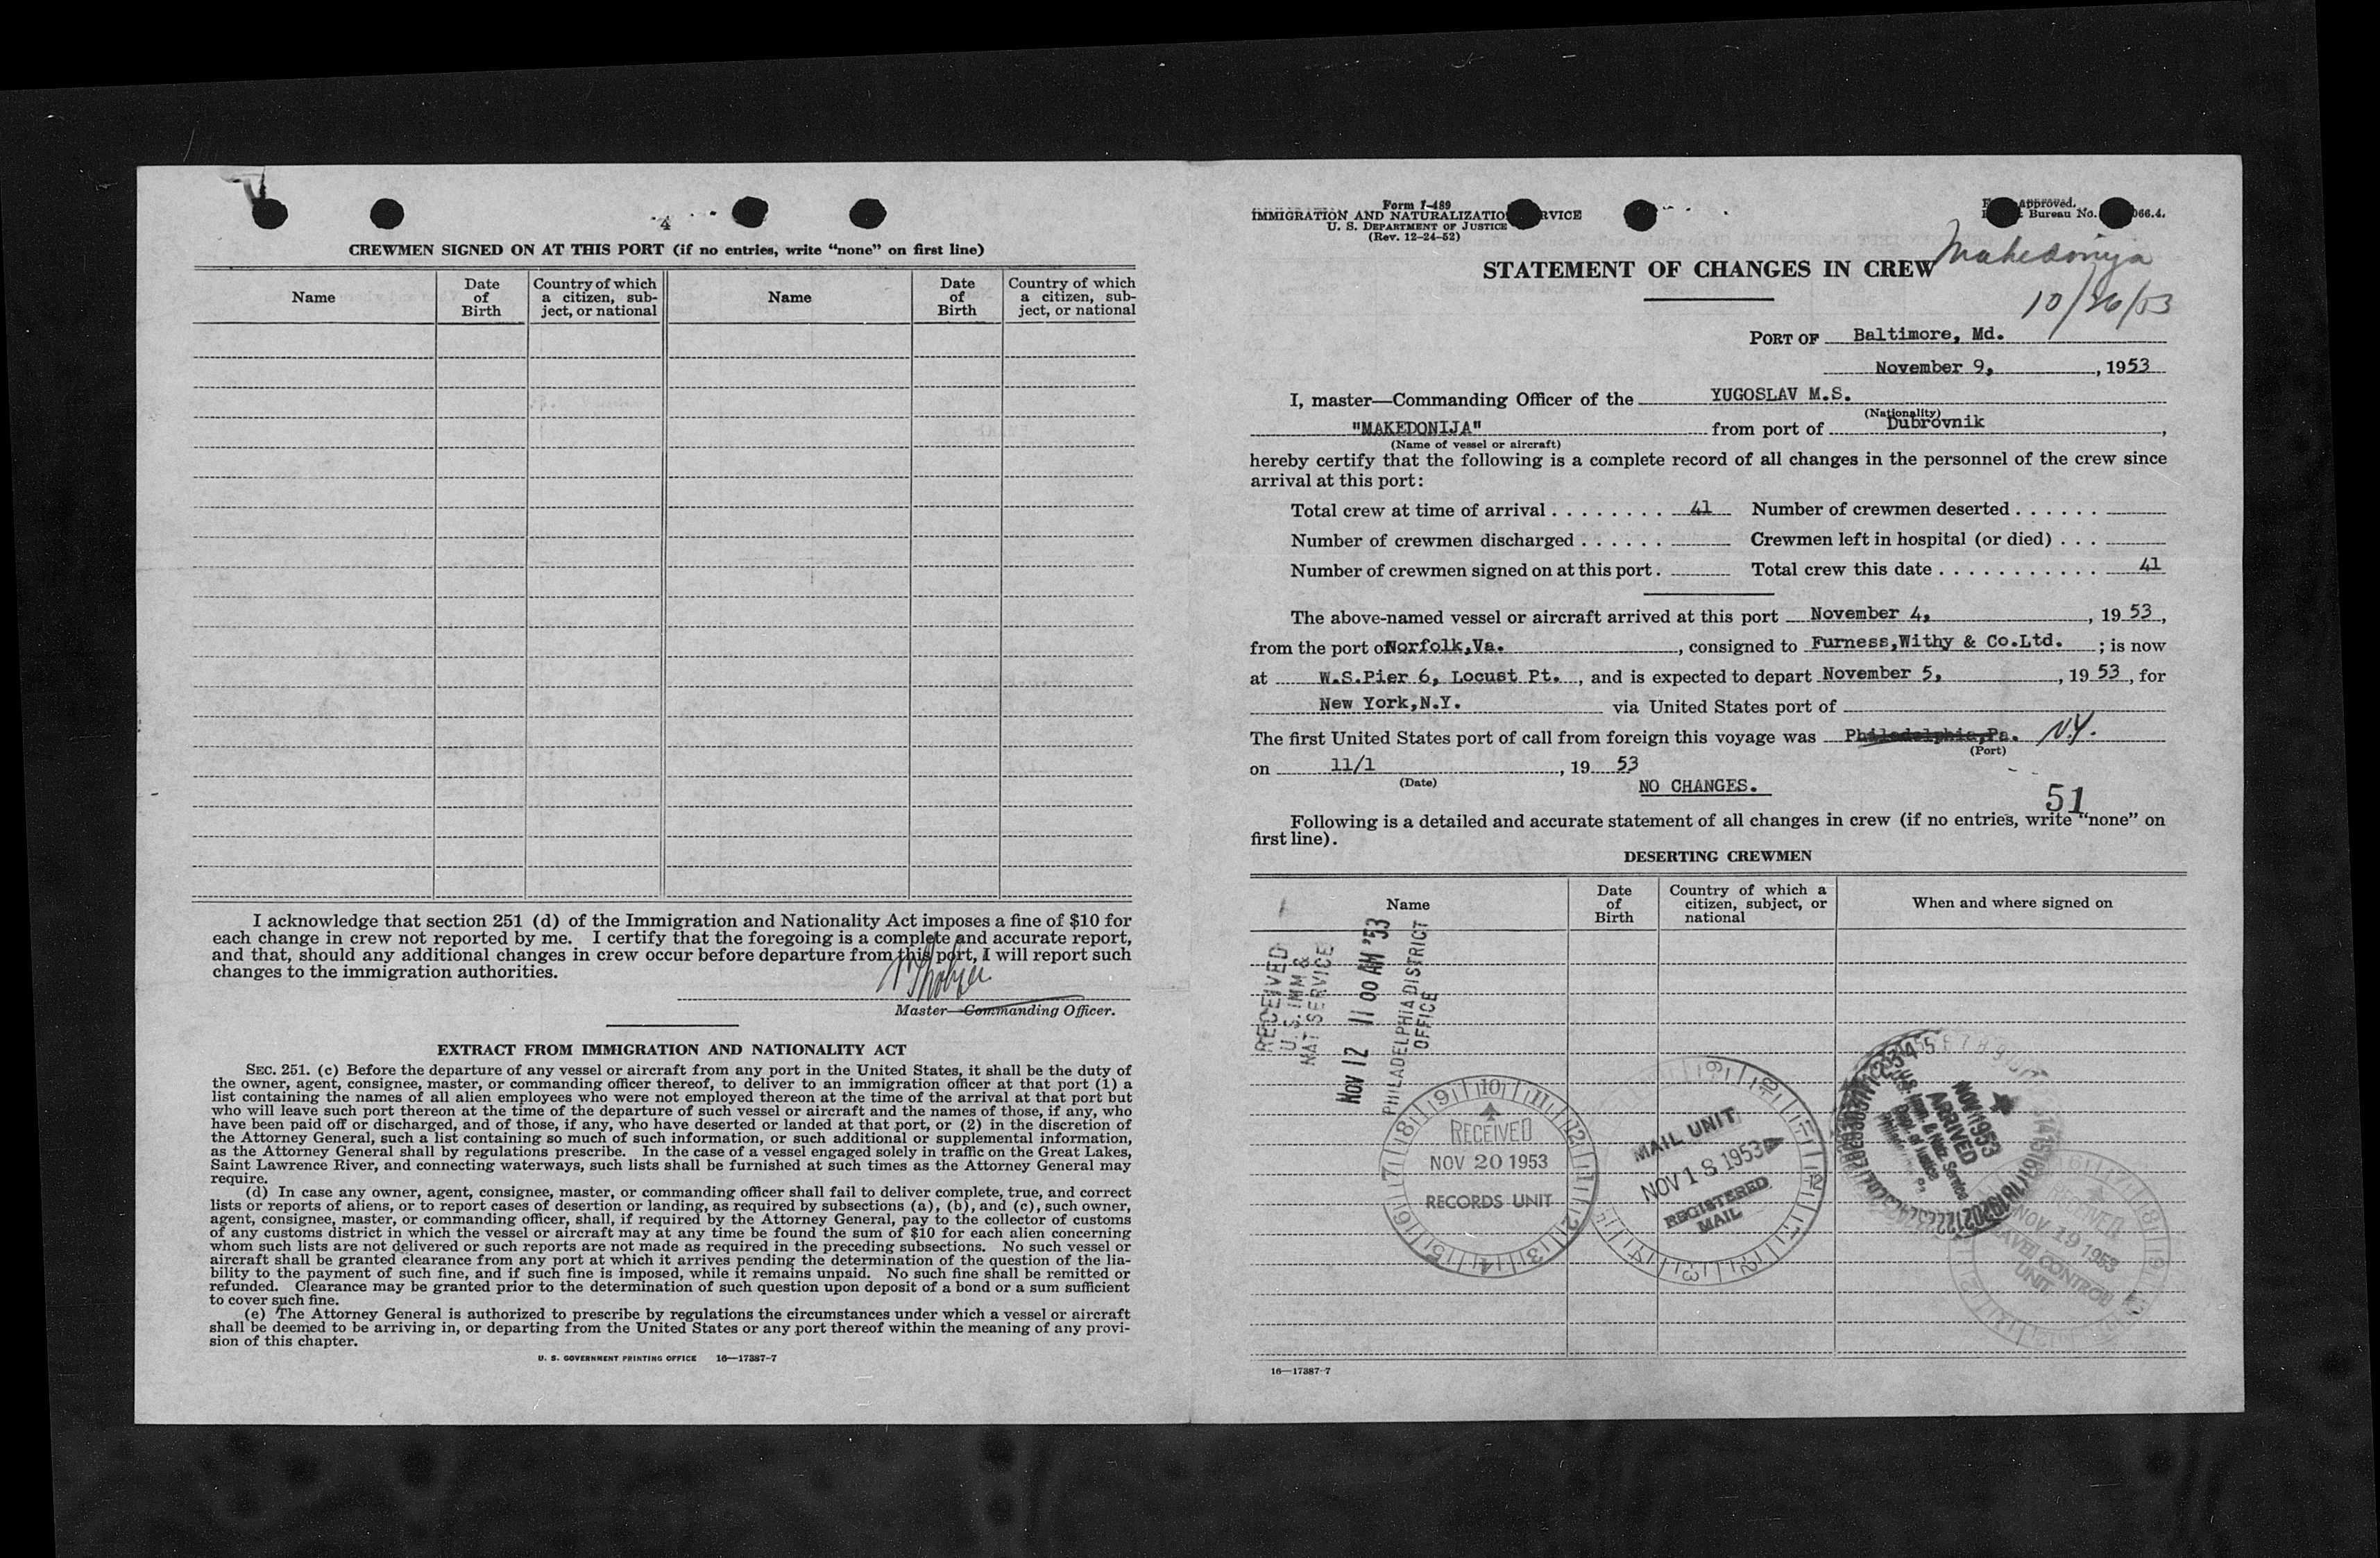 4
CREWMEN SIGNED ON AT THIS PORT (if no entries, write “none” on first line)
Name
Date of Birth
Country of which a citizen, subject, or national
Name
Date of Birth
Country of which a citizen, subject, or national
I acknowledge that section 251 (d) of the Immigration and Nationality Act imposes a fine of $10 for
each change in crew not reported by me. I certify that the foregoing is a complete and accurate report,
and that, should any additional changes in crew occur before departure from this port, I will report such
changes to the immigration authorities.
Master—Commanding Officer.
EXTRACT FROM IMMIGRATION AND NATIONALITY ACT
SEC. 251. (c) Before the departure of any vessel or aircraft from any port in the United States, it shall be the duty of
the owner, agent, consignee, master, or commanding officer thereof, to deliver to an immigration officer at that port (1) a
list containing the names of all alien employees who were not employed thereon at the time of the arrival at that port but
who will leave such port thereon at the time of the departure of such vessel or aircraft and the names of those, if any, who
have been paid off or discharged, and of those, if any, who have deserted or landed at that port, or (2) in the discretion of
the Attorney General, such a list containing so much of such information, or such additional or supplemental information,
as the Attorney General shall by regulations prescribe. In the case of a vessel engaged solely in traffic on the Great Lakes,
Saint Lawrence River, and connecting waterways, such lists shall be furnished at such times as the Attorney General may
require.
(d) In case any owner, agent, consignee, master, or commanding officer shall fail to deliver complete, true, and correct
lists or reports of aliens, or to report cases of desertion or landing, as required by subsections (a), (b), and (c), such owner,
agent, consignee, master, or commanding officer, shall, if required by the Attorney General, pay to the collector of customs
of any customs district in which the vessel or aircraft may at any time be found the sum of $10 for each alien concerning
whom such lists are not delivered or such reports are not made as required in the preceding subsections. No such vessel or
aircraft shall be granted clearance from any port at which it arrives pending the determination of the question of the lia-
bility to the payment of such fine, and if such fine is imposed, while it remains unpaid. No such fine shall be remitted or
refunded. Clearance may be granted prior to the determination of such question upon deposit of a bond or a sum sufficient
to cover such fine.
(e) The Attorney General is authorized to prescribe by regulations the circumstances under which a vessel or aircraft
shall be deemed to be arriving in, or departing from the United States or any port thereof within the meaning of any provi-
sion of this chapter.
U. S. GOVERNMENT PRINTING OFFICE 16—17387-7
Form I-489
IMMIGRATION AND NATURALIZATIO RVICE
U. S. DEPARTMENT OF JUSTICE
(Rev. 12-24-52)
Approved.
Bureau No. 066.4.
Makedonija
10/26/53
STATEMENT OF CHANGES IN CREW
PORT OF Baltimore, Md.
November 9, , 1953
I, master—Commanding Officer of the YUGOSLAV M.S.
(Nationality)
"MAKEDONIJA" from port of Dubrovnik ,
(Name of vessel or aircraft)
hereby certify that the following is a complete record of all changes in the personnel of the crew since
arrival at this port:
Total crew at time of arrival . . . . . . . . 41 Number of crewmen deserted . . . . . .
Number of crewmen discharged . . . . . . Crewmen left in hospital (or died) . . .
Number of crewmen signed on at this port . Total crew this date . . . . . . . . . . . . 41
The above-named vessel or aircraft arrived at this port November 4, , 19 53,
from the port of Norfolk,Va. , consigned to Furness,Withy & Co.Ltd. ; is now
at W.S.Pier 6, Locust Pt. , and is expected to depart November 5, , 19 53 , for
New York,N.Y. via United States port of
The first United States port of call from foreign this voyage was Philadelphia,Pa. N.Y.
(Port)
on 11/1 , 19 53
(Date)
NO CHANGES.
51
Following is a detailed and accurate statement of all changes in crew (if no entries, write “none” on
first line).
DESERTING CREWMEN
Name
Date of Birth
Country of which a citizen, subject, or national
When and where signed on
RECEIVED
U.S. IMM &
NAT SERVICE
NOV 12 11 00 AM '53
PHILADELPHIA DISTRICT
OFFICE
RECEIVED
NOV 20 1953
RECORDS UNIT
MAIL UNIT
NOV 18 1953
REGISTERED
MAIL
NOV 1953
ARRIVED
U.S. Imm. & Natz. Service
Dept. of Justice
RECEIVED
NOV 19 1953
CONTROL
UNIT
16—17387-7